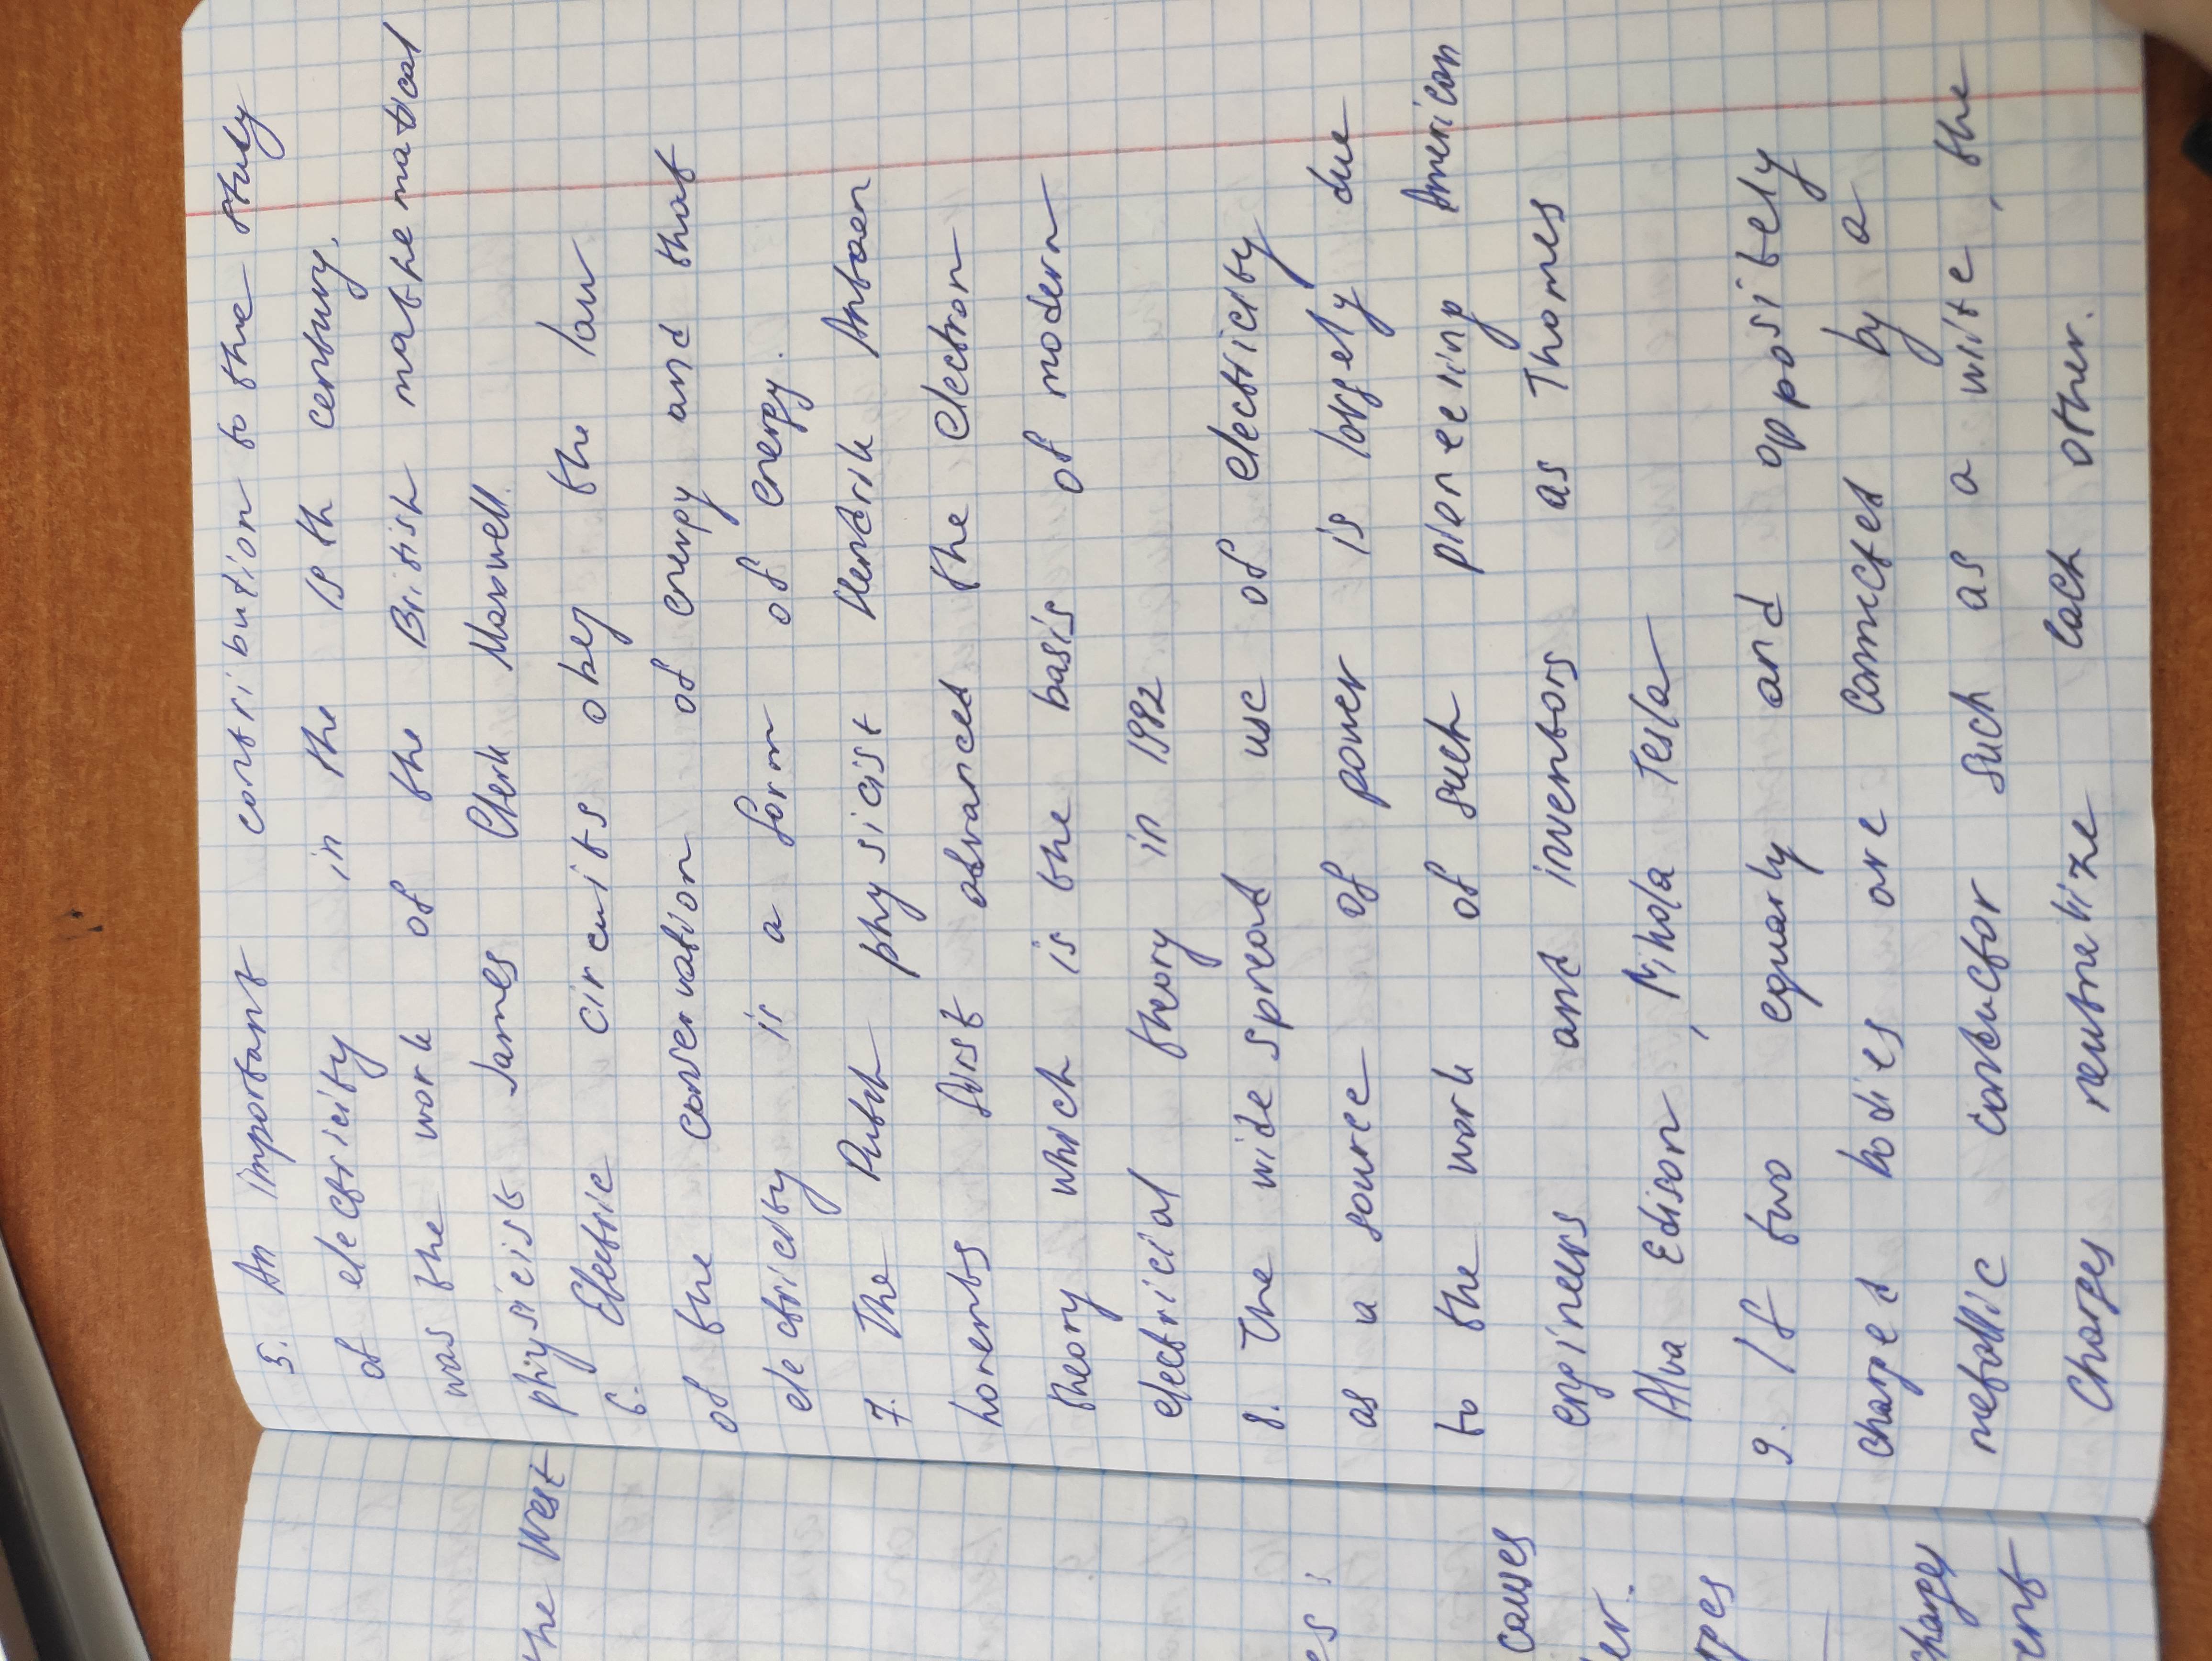 5. An important contribution to the study
of electricity in the 19 th century.
was the work of the British mathematical
physicist James Clerk Maxwell.
6. Electric circuits obey the law
of the conservation of energy and that
electricity is a form of energy.
7. The Dutch physicist Hendrik Antoon
horents first advanced the electron
theory which is the basis of modern
electricial theory in 1982
8. The wide spread use of electricity
as a source of power is lorgely due
to the work of such pioneering American
engineers and inventors as Thomes
Alva Edison, Nikola Tesla
9. If two equarly and oppositely
charged bodies are connected by a
metallic conductor such as a wire, the
Charges neutrelize each other.
the West
es:
causes
er.
rges
charges
rent